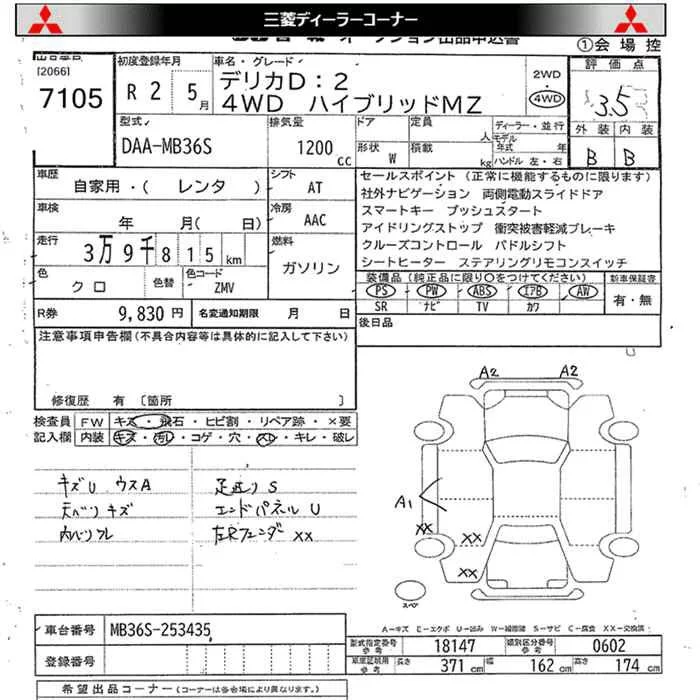 三菱ディーラーコーナー
出品番号 初度登録年月 車名・グレード ①会 場 控
[2066] デリカD:2 2WD 評 価 点
7105 R 2 5月 4WD ハイブリッドMZ 4WD 3.5
型式 排気量 ドア 定員 人 ディーラー・並行 外 装 内 装
DAA-MB36S 1200cc 形状 W 積載 kg モデル年式 年 ハンドル 左・右 B B
車歴 シフト セールスポイント (正常に機能するものに限ります)
自家用・( レンタ ) AT 社外ナビゲーション 両側電動スライドドア
車検 冷房 スマートキー プッシュスタート
年 月( 日) AAC アイドリングストップ 衝突被害軽減ブレーキ
走行 燃料 クルーズコントロール パドルシフト
3万9千815km ガソリン シートヒーター ステアリングリモコンスイッチ
色 色替 色コード 装備品 (純正品に限り○をつけてください) 新車保証書
クロ ZMV PS PW ABS エアB AW 有・無
SR ナビ TV カワ
R券 9,830 円 名変通知期限 月 日 後日品
注意事項申告欄(不具合内容等は具体的に記入して下さい)
修復歴 有 〔箇所 〕
検査員 FW キズ・飛石・ヒビ割・リペア跡・×要
記入欄 内装 キズ・汚レ・コゲ・穴・スレ・キレ・破レ
A2 A2
キズU ウスA 足廻りS
天バリキズ エンドパネルU A1
内バリスレ 左Rフェンダ XX XX XX
XX
スペア
A-キズ E-エクボ U-凹み W-補修跡 S-サビ C-腐食 XX-交換済
車台番号 MB36S-253435
型式指定番号 参考 18147 類別区分番号 参考 0602
登録番号 車庫証明用 参考 長さ 371cm 幅 162cm 高さ 174cm
希望出品コーナー (コーナーは各会場により異なります。)